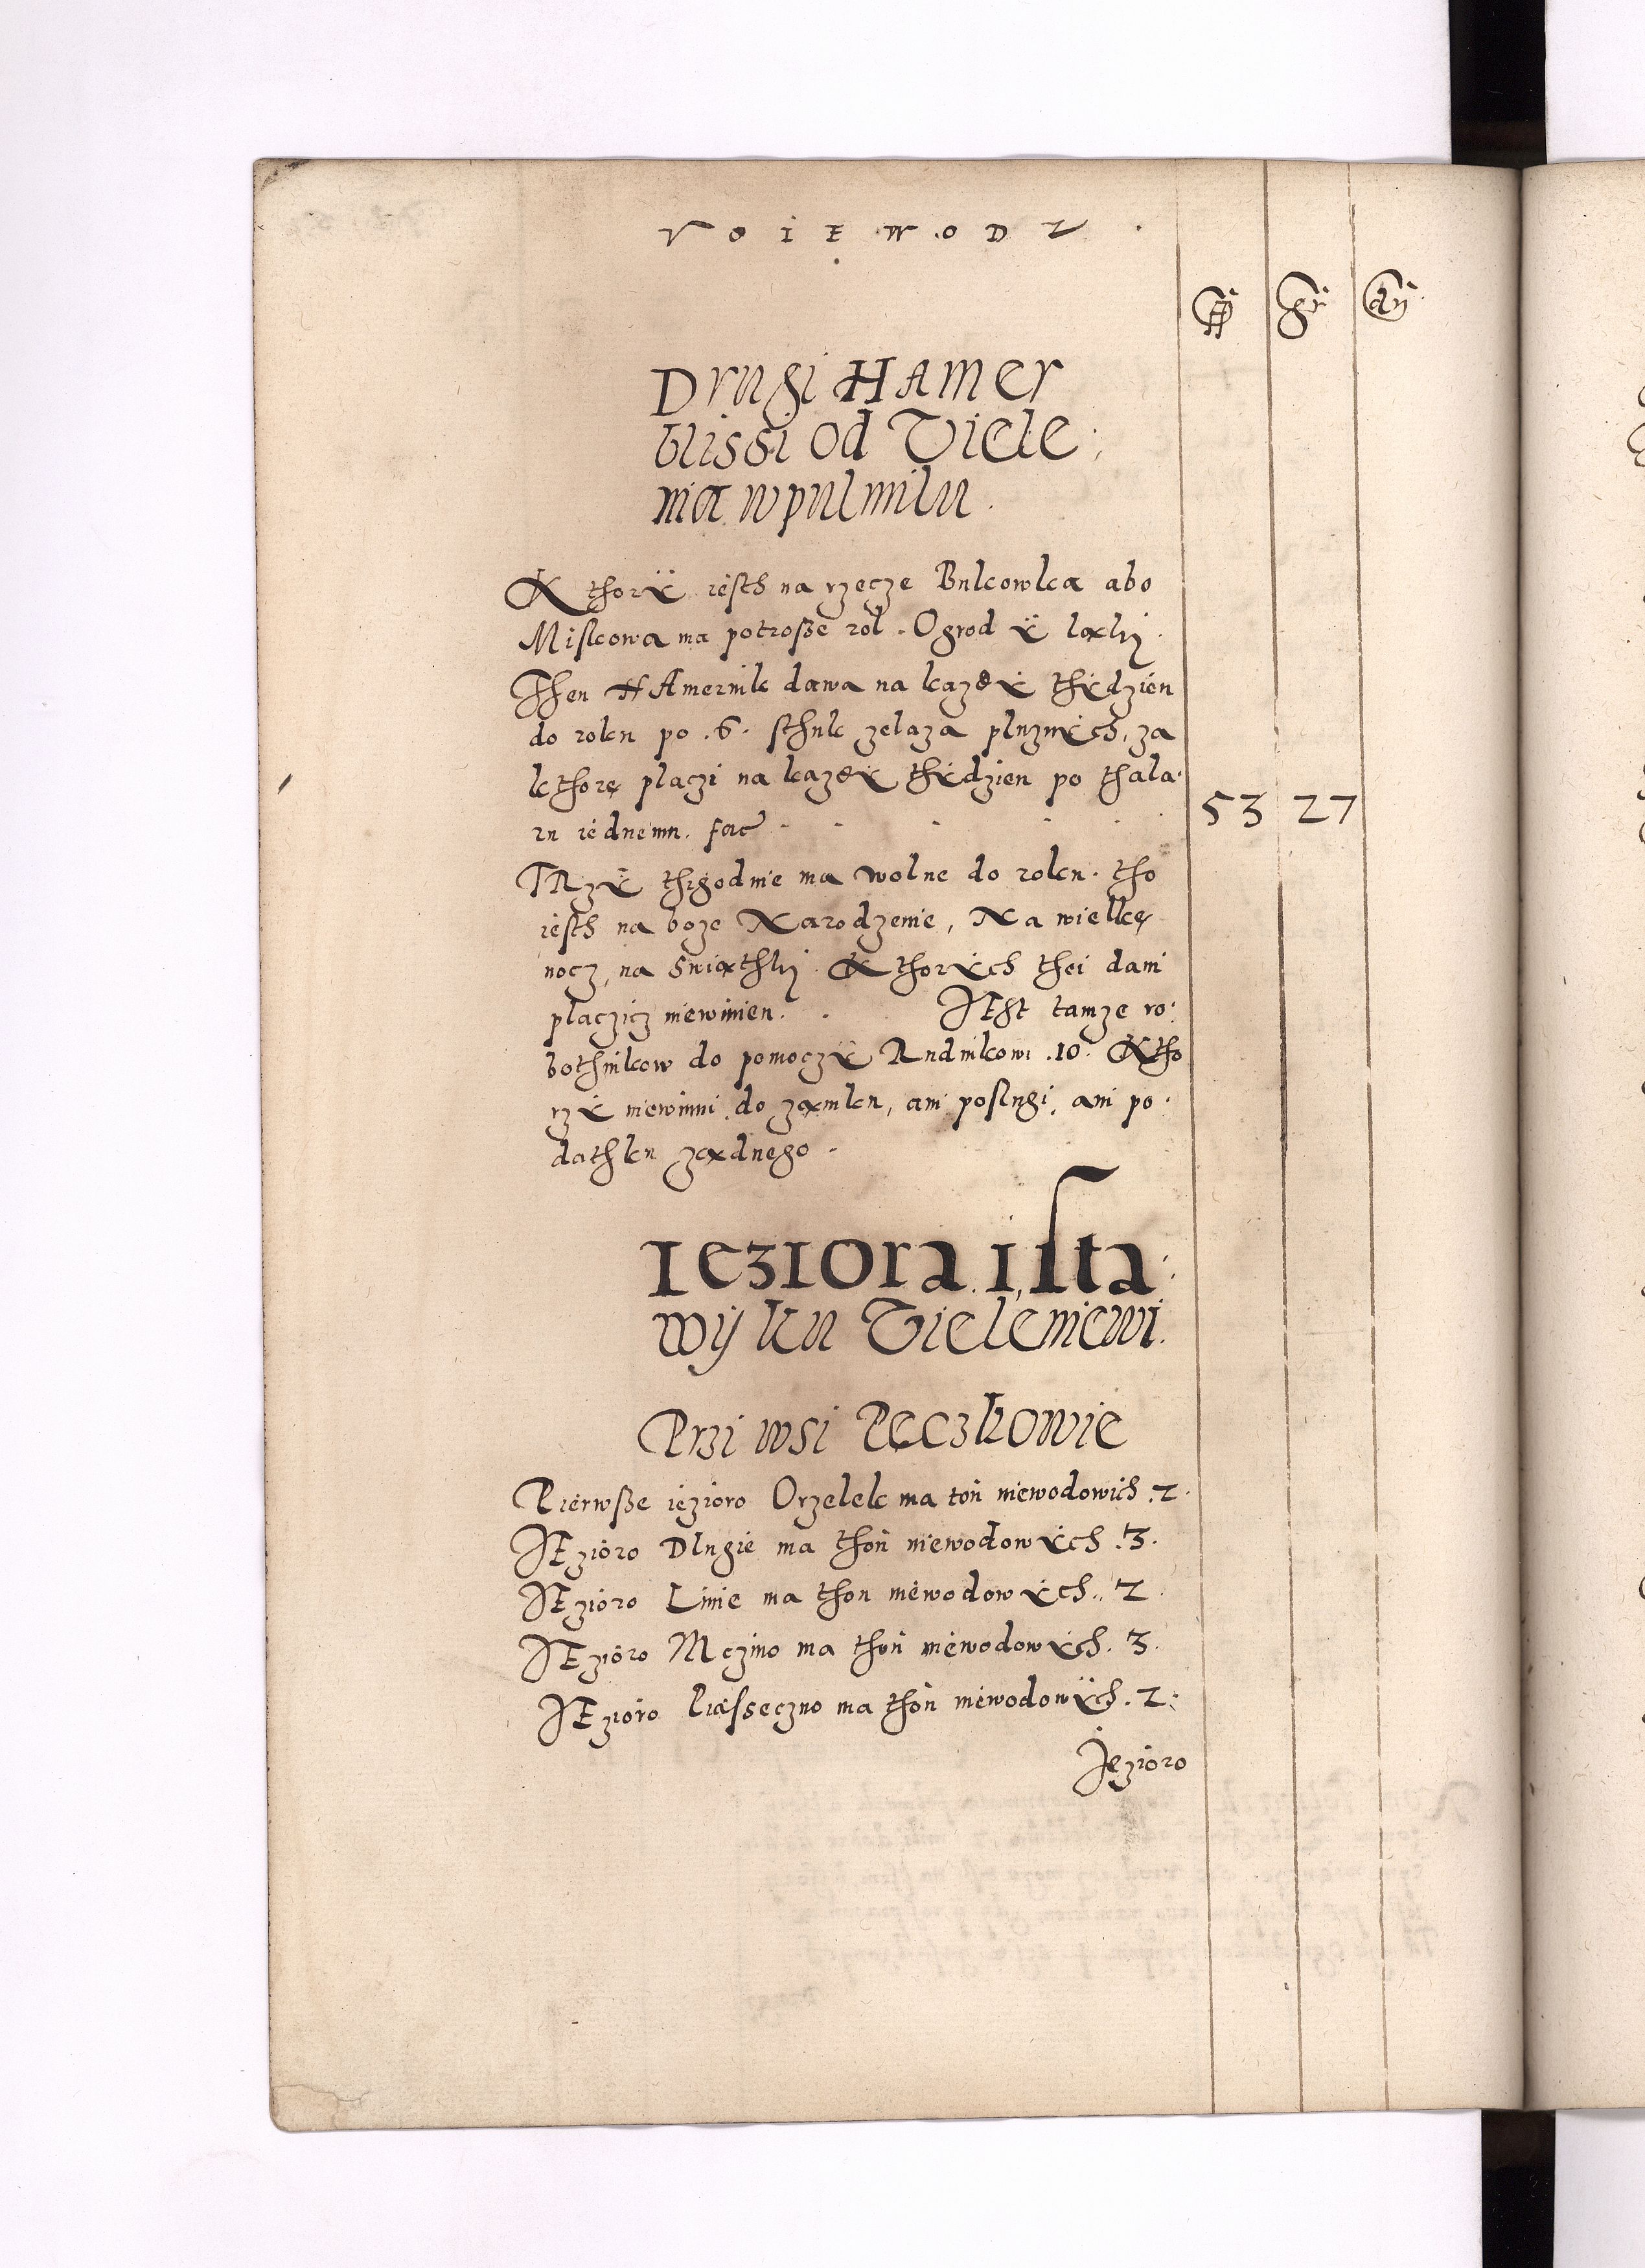 VOIEWODZ.
fl gr dn
Drugi HAmer
blissi od Viele
nia w pulmilu.
Kthorÿ iesth na rzecze Bukowka abo
Miskowa ma potrosze rol. Ogrod ÿ ląki.
Then HAmernik dawa na kazdÿ thÿdzien
do roku po .6. sthuk zelaza pluznÿch, za
kthore placzi na kazdÿ thÿdzien po thala-
ru iednemu. facit 53 27
TRzÿ thigodnie ma wolne do roku. tho
iesth na boze Narodzenie, Na wielką
nocz, na swiąthki. Kthorÿch thei dani
placzicz niewinien. IEst tamze ro-
bothnikow do pomoczÿ Rudnikowi .10. Ktho
rzÿ niewinni do zamku, ani poslugi, ani po-
dathku ządnego.
Ieziora i sta
wÿ ku Vieleniewi.
Przi wsi Pęczkowie
Pierwsze iezioro Orzelek ma toń niewodowich .2.
IEzioro Dlugie ma thoń niewodowÿch .3.
IEzioro Linie ma thon niewodowÿch .. 2
IEzioro Męzino ma thoń niewodowÿch. 3.
IEzioro Piasseczno ma thoń niewodowÿch. 2.
Iezioro